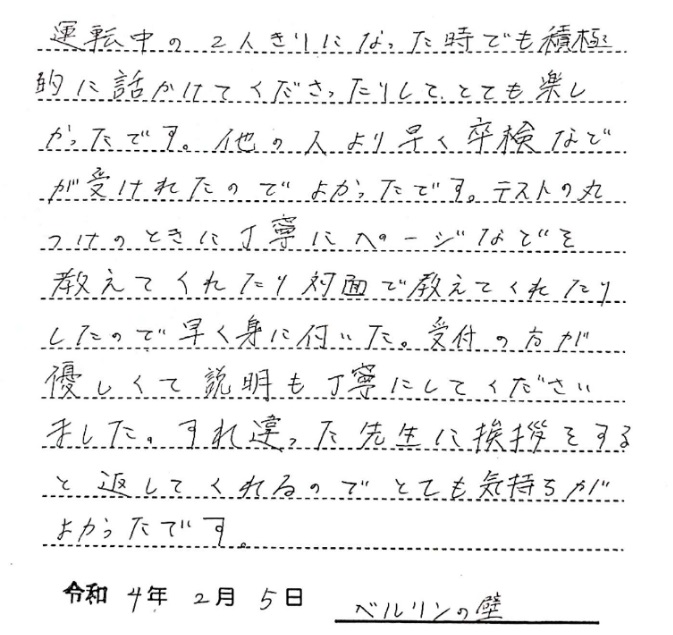 運転中の2人きりになった時でも積極
的に話かけてくださったりして、とても楽し
かったです。他の人より早く卒検など
が受けれたのでよかったです。テストの丸
つけのときに丁寧にページなどを
教えてくれたり対面で教えてくれたり
したので早く身に付いた。受付の方が
優しくて説明も丁寧にしてください
ました。すれ違った先生に挨拶をする
と返してくれるのでとても気持ちが
よかったです。
令和4年2月5日 ベルリンの壁